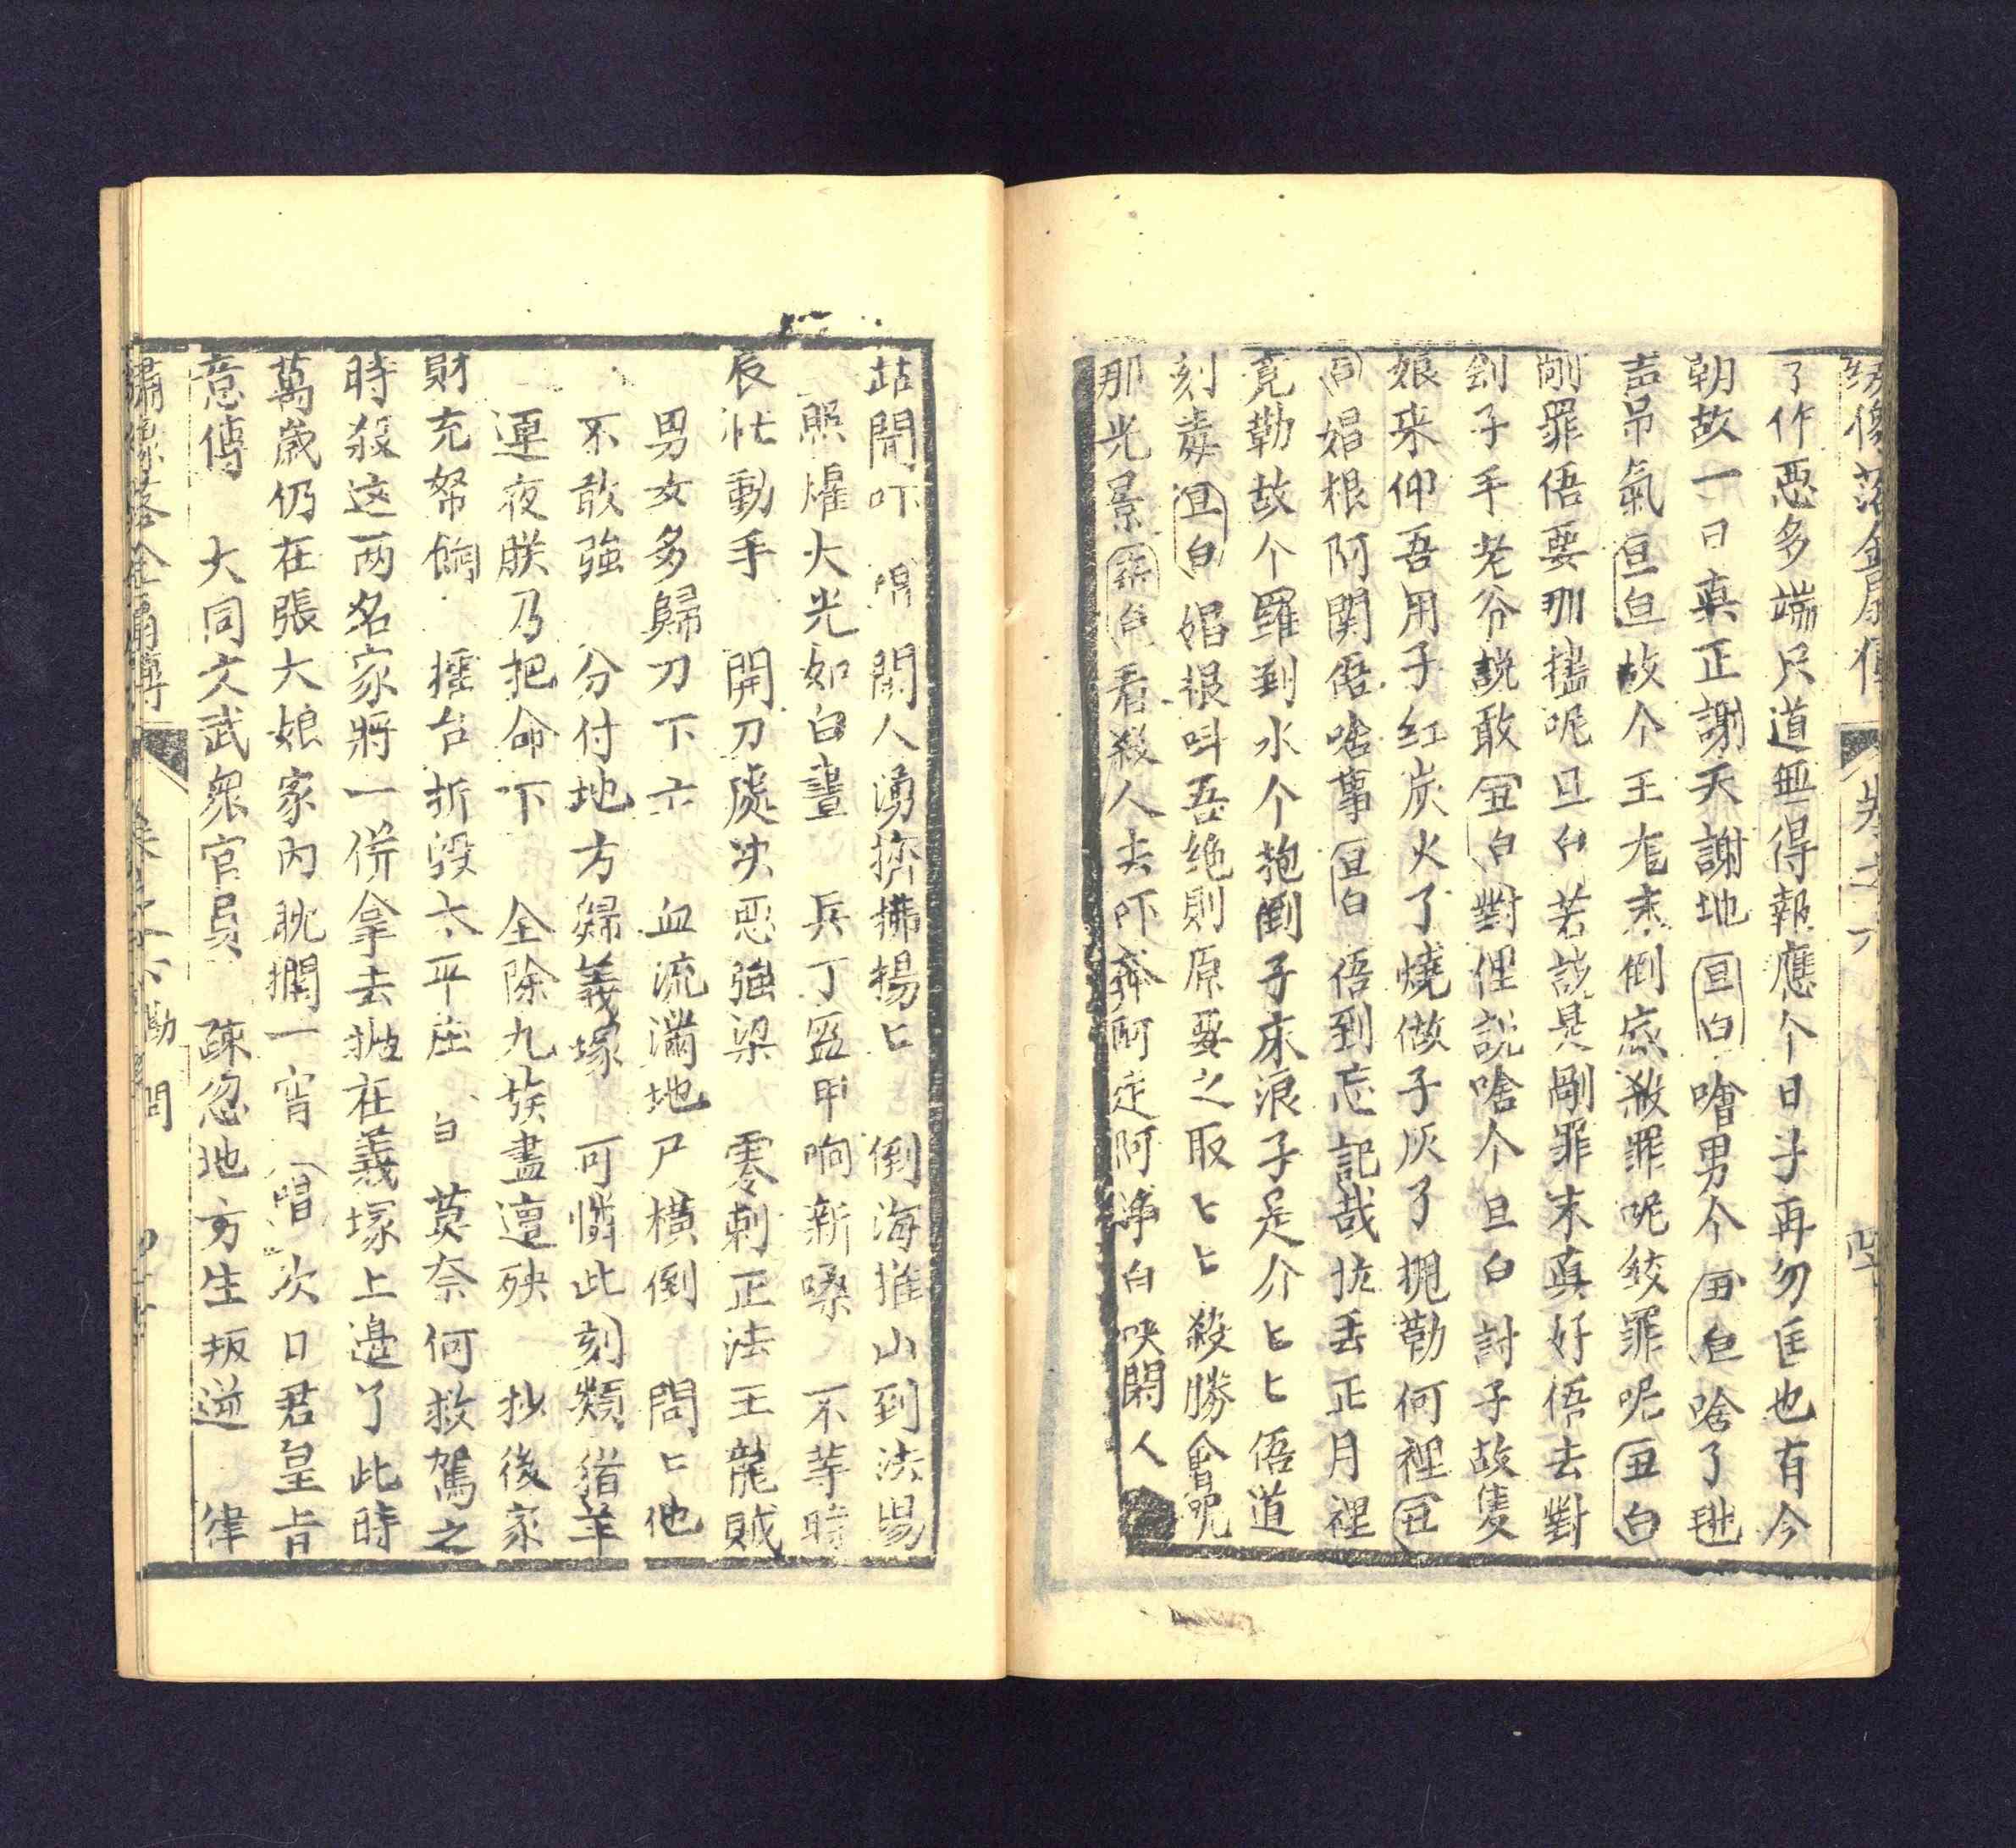 綉像落金扇傳 卷之六
了作惡多端只道無得報應个日子再勿匡也有今
朝故一日真正謝天謝地旦白噲男个丑白啥了跳
声吊氣旦白故个王龙素倒底殺罪呢絞罪呢丑白
剮罪俉要那搕呢旦白若說是剮罪末真好俉去對
劊子手老爺説敢丑白對俚説啥个旦白討子故隻
娘来仰吾用子红炭火了燒做子灰了抛勒何裡丑
同娼根阿関俉啥事旦白俉到忘記哉拉丟正月裡
竟勒故个羅到水个抱倒子床浪子是介匕匕俉道
刻毒丑白娼根呌吾絶則原要之取匕匕殺勝會哉
那光景衆白看殺人去吓奔阿走阿淨白呔閑人
站開吓 唱閑人湧擠擁揚匕 倒海推山到法場
照燿火光如白晝 兵丁盔甲响新嗓 不等時
辰忙動手 開刀處决惡強梁 零剌正法王龍賊
男女多歸刀下亡 血流滿地尸橫倒 問匕他
不敢強 分付地方歸義塚 可憐此刻類猪羊
連夜朕乃把命下 全除九族盡遭殃 抄後家
財充帑餉 擂台折毀太平庄 白莫奈何救駕之
時殺这两名家將一併拿去拋在義塚上邉了此時
萬歲仍在張大娘家內耽擱一宵 唱次日君皇旨
意傳 大同文武衆官員 疎忽地方生叛逆 律
繡像落金扇傳 卷之六勘問